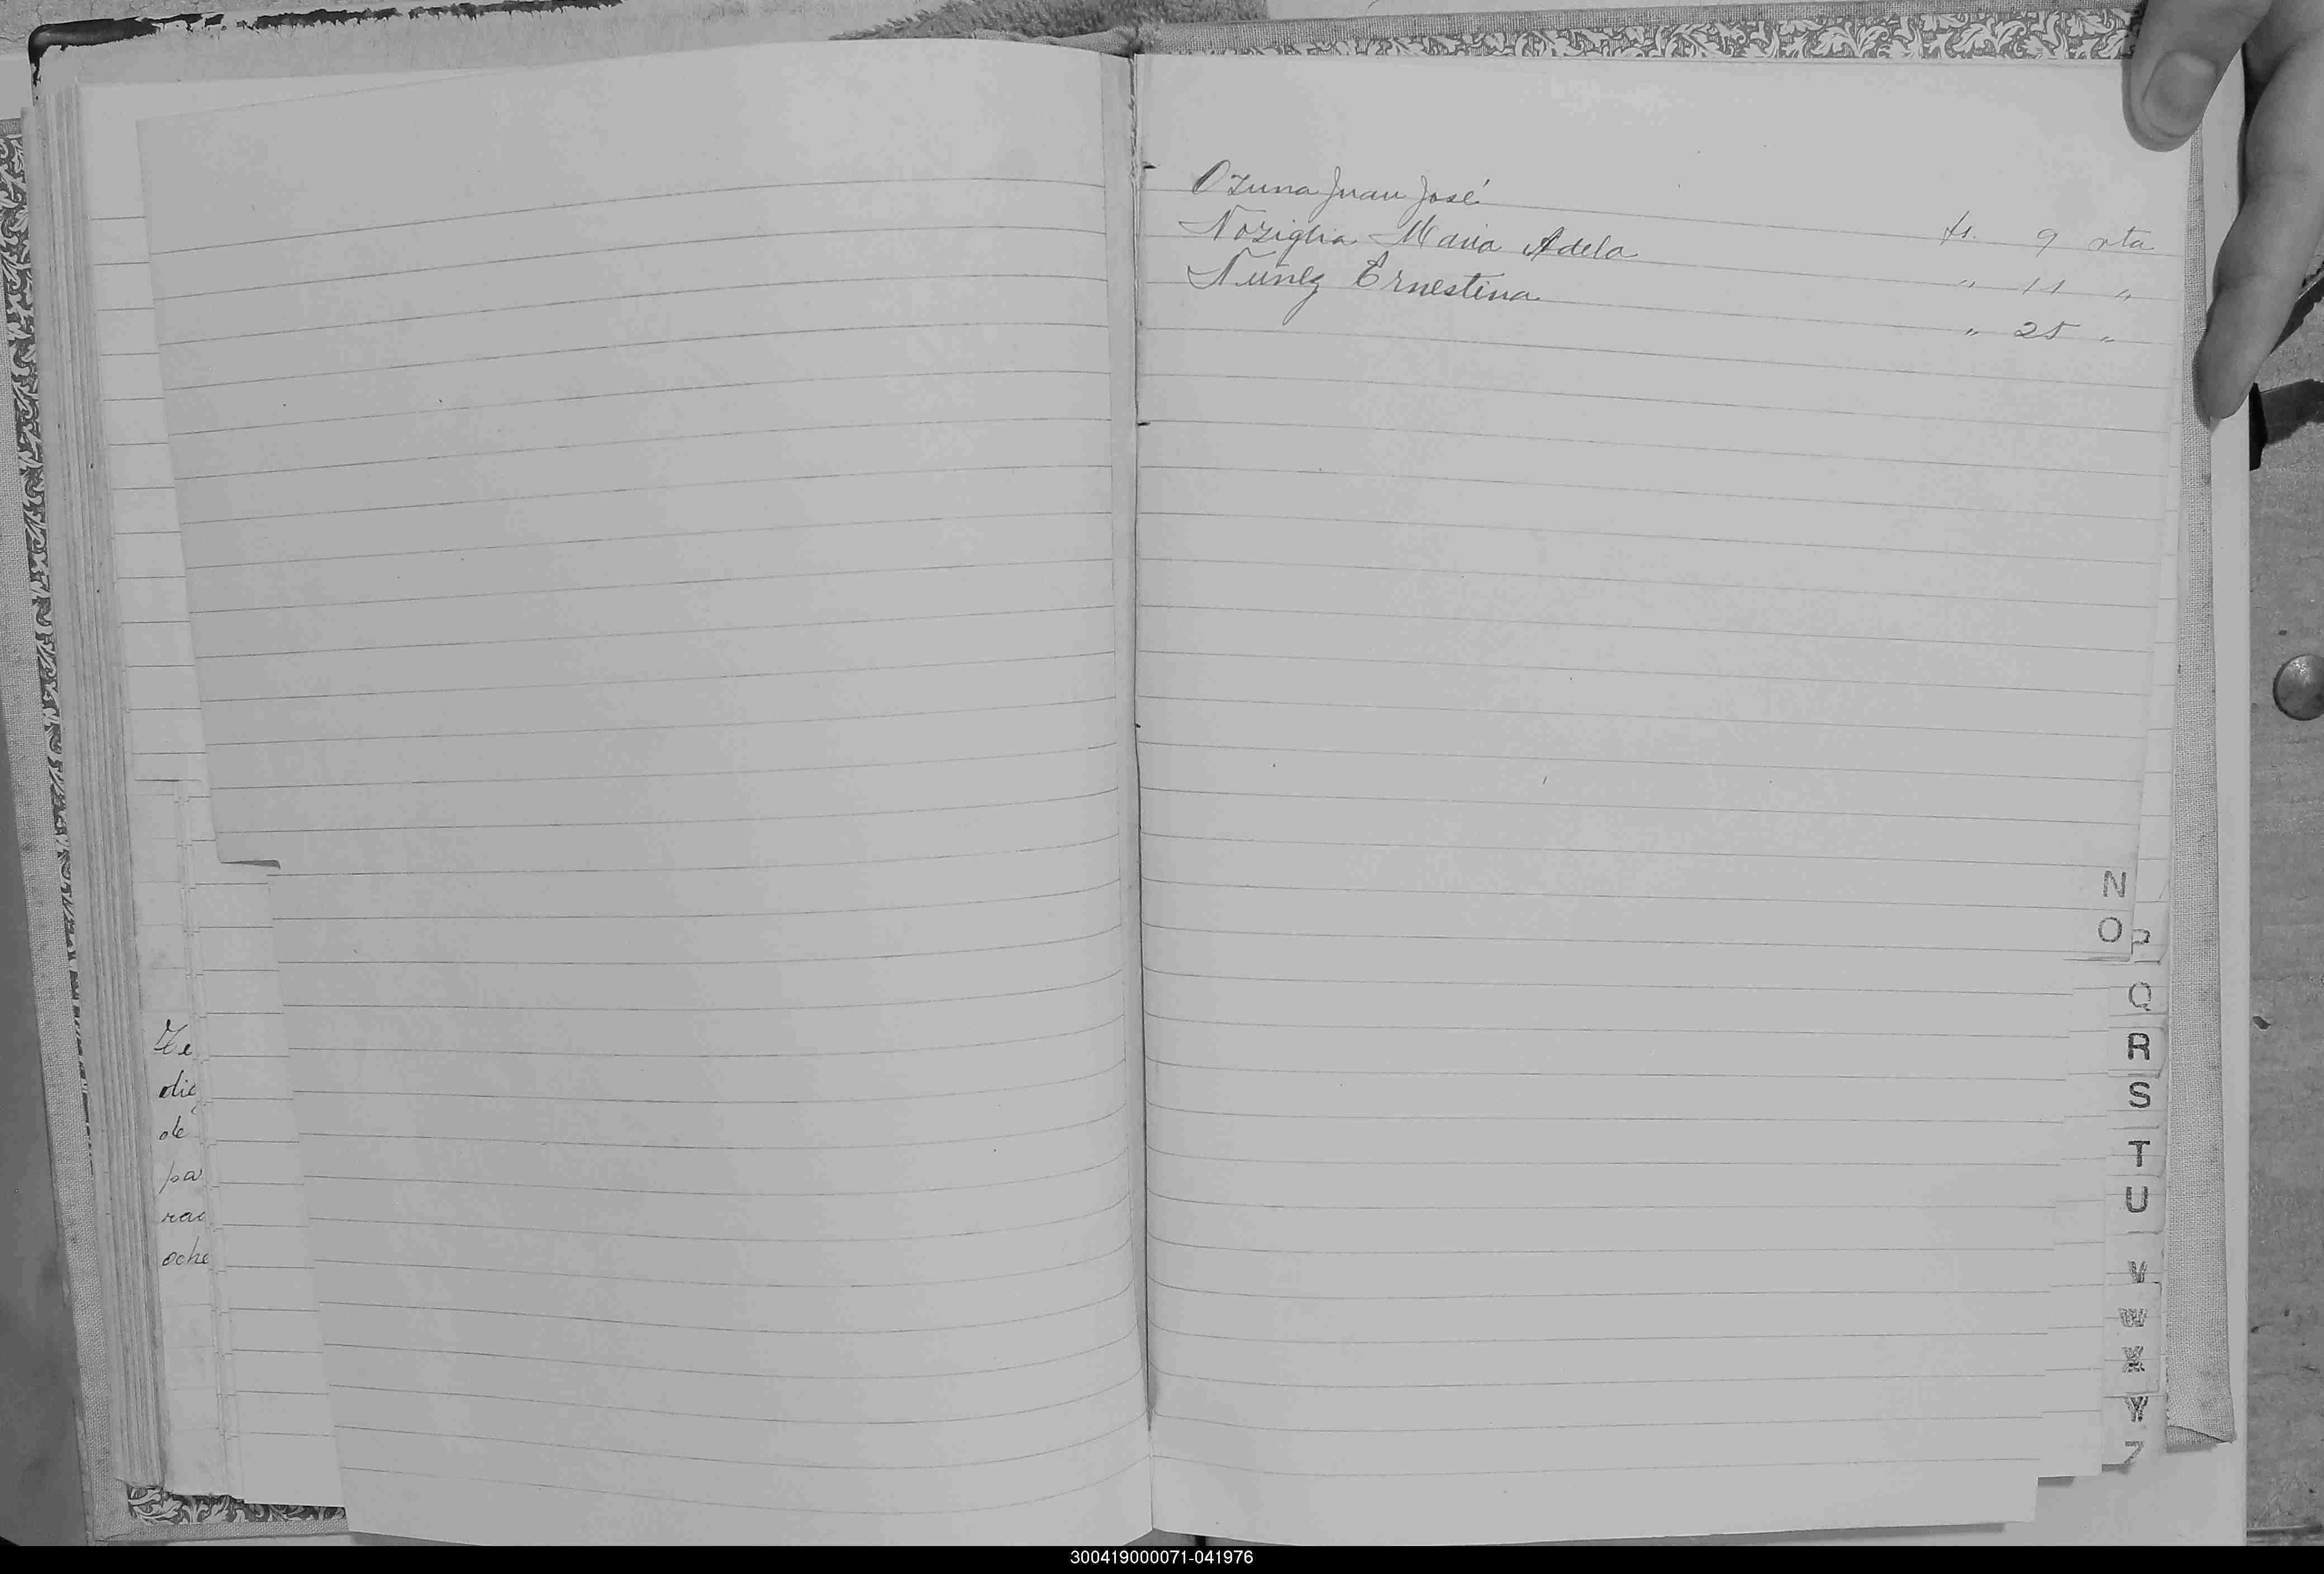 Ozuna Juan José fs. 9 vta
Noziglia Maria Adela " 11 "
Nuñez Ernestina " 25 "
N
O
P
Q
R
S
T
U
V
W
X
Y
Z
de
pa
rac
oche
300419000071-041976